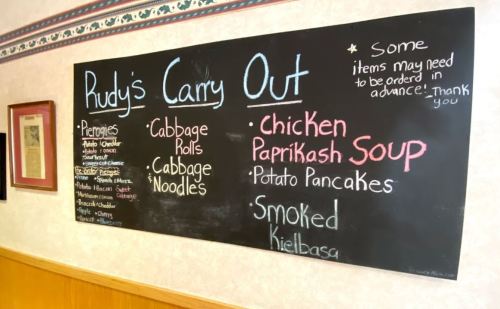 Rudy's Carry Out
★ Some
items may need
to be orderd in
advance! -Thank
you
• Pierogies
• Potato & Cheddar
• Potato & Onion
• Sauerkraut
• Prune
• Potato & Bacon Sweet
Cabbage
• Mushroom & Onion
• Broccoli & Cheddar
• Apple • Cherry
• Apricot • Blueberry
• Cabbage
Rolls
• Cabbage
& Noodles
• Chicken
Paprikash Soup
• Potato Pancakes
• Smoked
Kielbasa